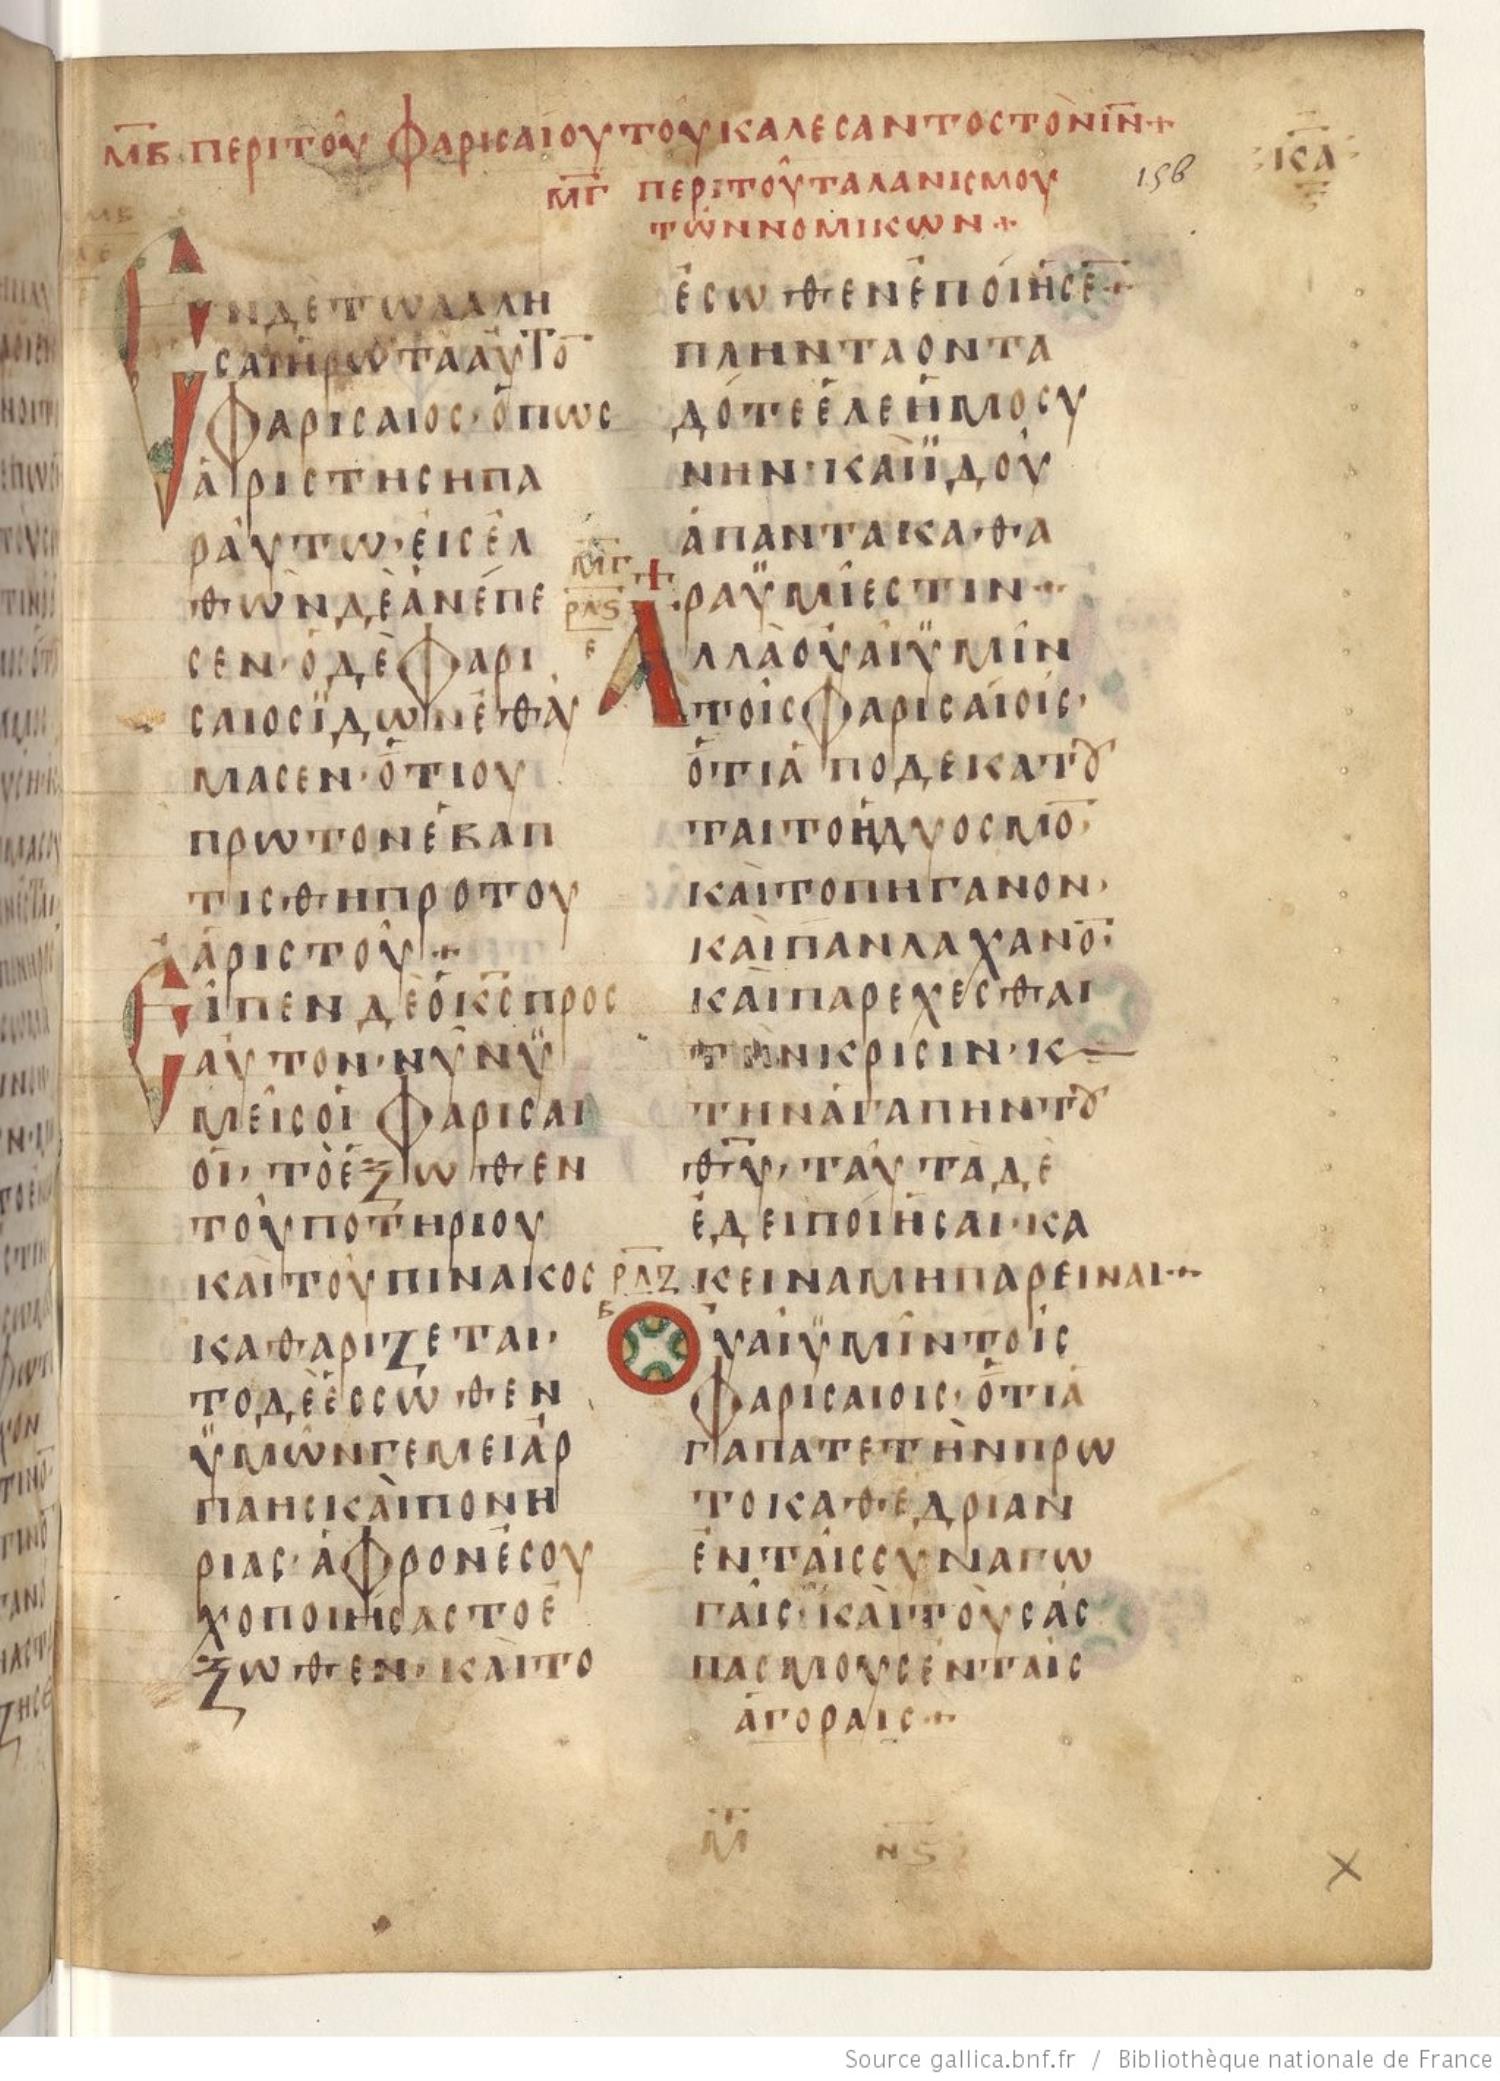 ΜΒ ΠΕΡΙ ΤΟΥ ΦΑΡΙΣΑΙΟΥ ΤΟΥ ΚΑΛΕΣΑΝΤΟΣ ΤΟΝ ΙΝ+
ΜΓ ΠΕΡΙ ΤΟΥ ΤΑΛΑΝΙΣΜΟΥ
ΤΩΝ ΝΟΜΙΚΩΝ+
156
ΚΑ
ΕΝ ΔΕ ΤΩ ΛΑΛΗ
ΣΑΙ ΗΡΩΤΑ ΑΥΤΟ̅
ΦΑΡΙΣΑΙΟΣ· ΟΠΩΣ
ΑΡΙΣΤΗΣΗ ΠΑ
Ρ ΑΥΤΩ· ΕΙΣΕΛ
ΘΩΝ ΔΕ ΑΝΕΠΕ
ΣΕΝ· Ο ΔΕ ΦΑΡΙ
ΣΑΙΟΣ ΪΔΩΝ ΕΘΑΥ
ΜΑΣΕΝ· ΟΤΙ ΟΥ
ΠΡΩΤΟΝ ΕΒΑΠ
ΤΙΣΘΗ ΠΡΟ ΤΟΥ
ΑΡΙΣΤΟΥ+
ΕΙΠΕΝ ΔΕ Ο ΚΣ ΠΡΟΣ
ΑΥΤΟΝ· ΝΥΝ Ϋ
ΜΕΙΣ ΟΙ ΦΑΡΙΣΑΙ
ΟΙ· ΤΟ ΕΞΩΘΕΝ
ΤΟΥ ΠΟΤΗΡΙΟΥ
ΚΑΙ ΤΟΥ ΠΙΝΑΚΟΣ
ΚΑΘΑΡΙΖΕΤΑΙ·
ΤΟ ΔΕ ΕΣΣΩΘΕΝ
ΫΜΩΝ ΓΕΜΕΙ ΑΡ
ΠΑΗΣ ΚΑΙ ΠΟΝΗ
ΡΙΑΣ· ΑΦΡΟΝΕΣ ΟΥ
Χ Ο ΠΟΙΗΣΑΣ ΤΟ Ε
ΞΩΘΕΝ· ΚΑΙ ΤΟ
ΕΣΩΘΕΝ ΕΠΟΙΗΣΕ̅+
ΠΛΗΝ ΤΑ ΟΝΤΑ
ΔΟΤΕ ΕΛΕΗΜΟΣΥ
ΝΗΝ· ΚΑΙ ΪΔΟΥ
ΑΠΑΝΤΑ ΚΑΘΑ
ΡΑ ΫΜΙ ΕΣΤΙΝ+
ΜΓ
ΡΛϚ
Ε
ΑΛΛΑ ΟΥΑΙ ΫΜΙΝ
ΤΟΙΣ ΦΑΡΙΣΑΙΟΙΣ·
ΟΤΙ ΑΠΟΔΕΚΑΤȢ
ΤΑΙ ΤΟ ΗΔΥΟΣΜΟ̅·
ΚΑΙ ΤΟ ΠΗΓΑΝΟΝ·
ΚΑΙ ΠΑΝ ΛΑΧΑΝΟ̅·
ΚΑΙ ΠΑΡΕΧΕΣΘΑΙ
ΤΗΝ ΚΡΙΣΙΝ· Κ
ΤΗΝ ΑΓΑΠΗΝ ΤȢ
ΘΥ· ΤΑΥΤΑ ΔΕ
ΕΔΕΙ ΠΟΙΗΣΑΙ· ΚΑ
ΚΕΙΝΑ ΜΗ ΠΑΡΕΙΝΑΙ+
ΡΛΖ
Β
ΟΥΑΙ ΫΜΙΝ ΤΟΙΣ
ΦΑΡΙΣΑΙΟΙΣ· ΟΤΙ Α
ΓΑΠΑΤΕ ΤΗΝ ΠΡΩ
ΤΟΚΑΘΕΔΡΙΑΝ
ΕΝ ΤΑΙΣ ΣΥΝΑΓΩ
ΓΑΙΣ· ΚΑΙ ΤΟΥΣ ΑΣ
ΠΑΣΜΟΥΣ ΕΝ ΤΑΙΣ
ΑΓΟΡΑΙΣ+
ΝϚ
Source gallica.bnf.fr / Bibliothèque nationale de France